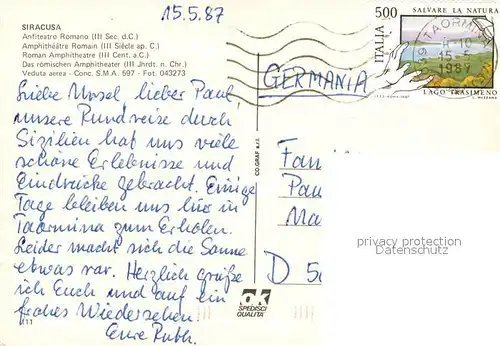 15.5.87
SIRACUSA
Anfiteatro Romano (III Sec. d.C.)
Amphithéâtre Romain (III Siècle ap. C.)
Roman Amphitheatre (III Cent. a.C.)
Das römischen Amphitheater (III Jhrdt. n. Chr.)
Veduta aerea - Conc. S.M.A. 597 - Fot. 043273
Liebe Ursel, lieber Paul,
unsere Rundreise durch
Sizilien hat uns viele
schöne Erlebnisse und
Eindrücke gebracht. Einige
Tage bleiben uns hier in
Taormina zum Erholen.
Leider macht sich die Sonne
etwas rar. Herzlich grüße
ich Euch und auf ein
frohes Wiedersehen!
Eure Ruth.
111
CO.GRAF s.r.l.
ak
SPEDISCI
QUALITÀ
500
SALVARE LA NATURA
ITALIA
LAGO TRASIMENO
TAORMINA
15.5
1987
GERMANIA
Fam
Pau
Ma
D 5
privacy protection
Datenschutz